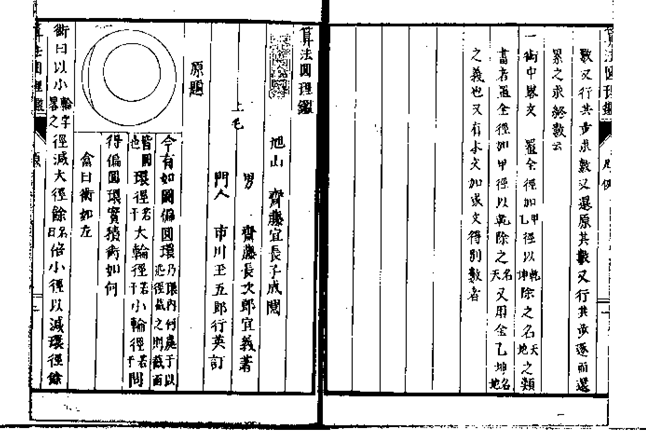 數又行其步求數又還原其數又行其步逐而還
累之求終數云
一術中畧文 置全徑加甲乙徑以乾坤除之名天地之類
書者置全徑加甲徑以乾除之名天又用全乙坤名地
之義也又有本文加或文得別數者
算法圓理鑑
旭山 齊藤宜長子成閲
上毛 男 齊藤長次郎宜義著
門人 市川玉五郎行英訂
原題
今有如圖偏圓環乃環内何處于以
徑截之則截面
皆圓也環徑若干大輪徑若干小輪徑若干問
得偏圓環實積術如何
答曰術如左
術曰以小輪字畧之徑減大徑餘名曰倍小徑以減環徑餘
算法圓理鑑